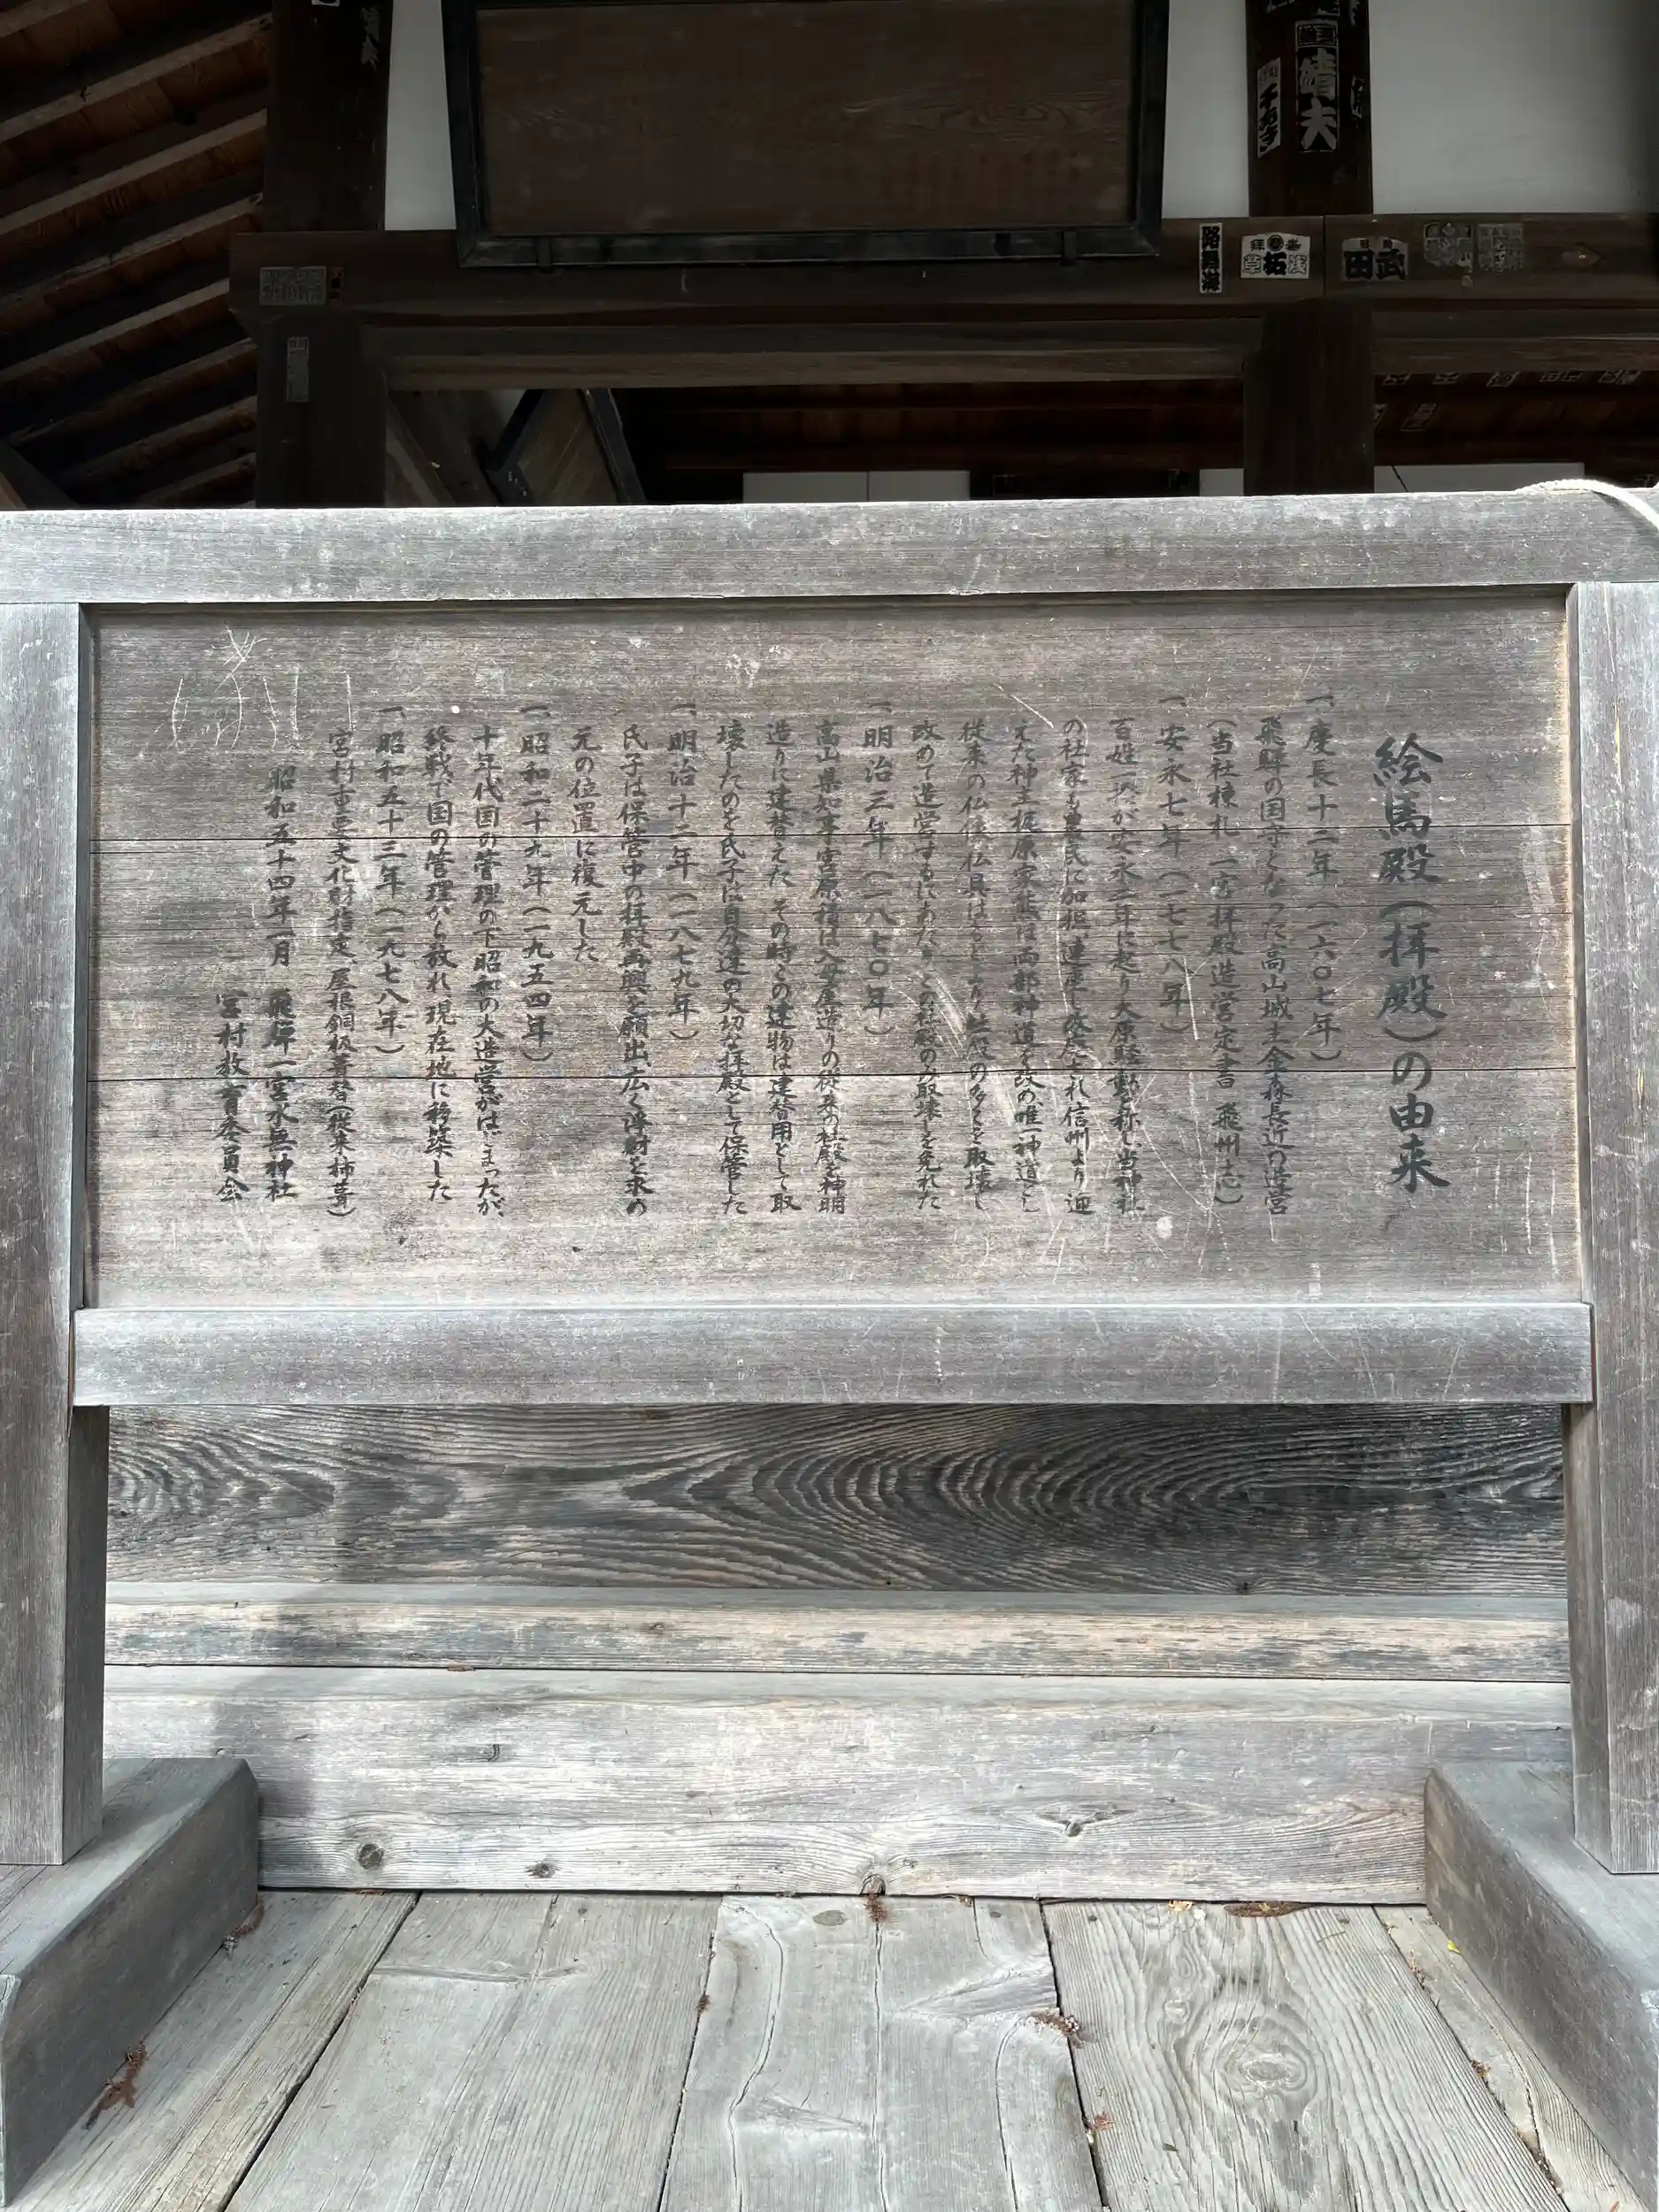 絵馬殿(拝殿)の由来
一、慶長十二年(一六〇七年)
飛騨の国守となった高山城主金森長近の造営
(当社棟札 一宮拝殿造営定書 飛州志)
一、安永七年(一七七八年)
百姓一揆が安永二年に起り大原騒動と称し当神社
の社家も農民に加担連座し処罰され信州より迎
えた神主梶原家熊は両部神道を改め唯一神道とし
従来の仏像仏具はもとより社殿の多くを取壊し
改めて造営するにあたりこの社殿のみ取壊しを免れた
一、明治三年(一八七〇年)
高山県知事宮原積は入母屋造りの従来の社殿を神明
造りに建替えた その時この建物は建替用として取
壊したのを氏子は自分達の大切な拝殿として保管した
一、明治十二年(一八七九年)
氏子は保管中の拝殿再興を願出広く浄財を求め
元の位置に復元した
一、昭和二十九年(一九五四年)
十年代国の管理の下昭和の大造営がはじまったが、
終戦で国の管理から放れ現在地に移築した
一、昭和五十三年(一九七八年)
宮村重要文化財指定、屋根銅板葺替(従来柿葺)
昭和五十四年一月 飛騨一宮水無神社
宮村教育委員会
靖夫
武田